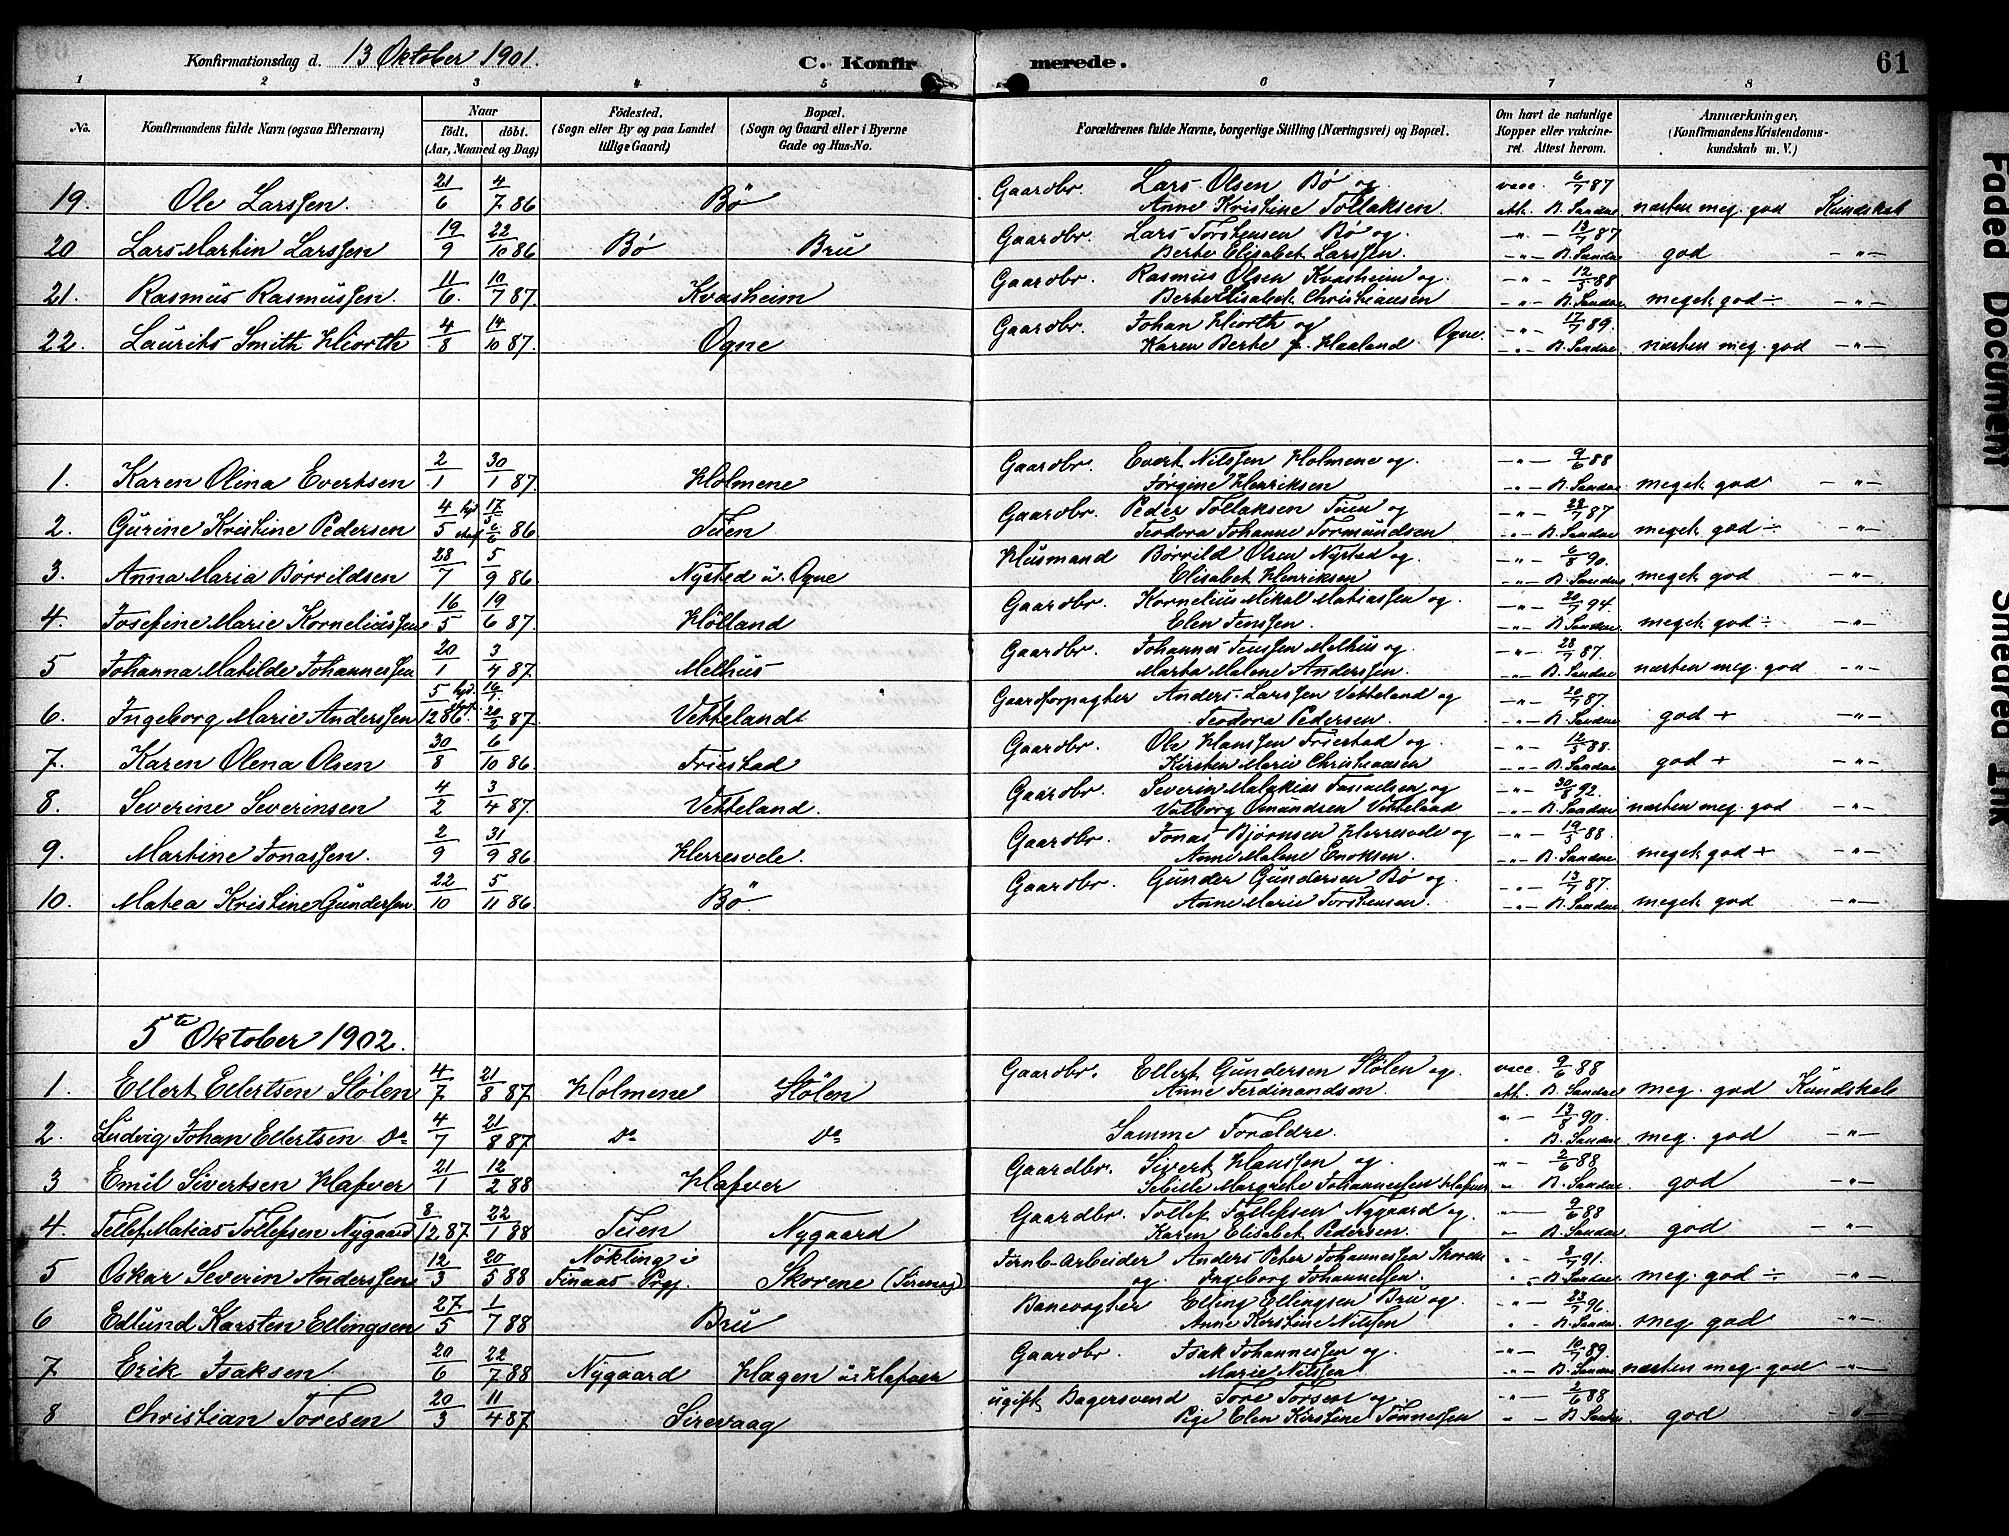 Konfirmationsdag d. 13 Oktober 1901. C. Konfirmerede. 61
1 2 3 4 5 6 7 8
No. Konfirmandens fulde Navn (ogsaa Efternavn) Naar født, døbt. (Aar, Maaned og Dag) Fødested. (Sogn eller By og paa Landet tillige Gaard) Bopæl. (Sogn og Gaard eller i Byerne Gade og Hus-No. Forældrenes fulde Navne, borgerlige Stilling (Næringsvei) og Bopæl. Om havt de naturlige Kopper eller vakcineret. Attest herom. Anmærkninger, (Konfirmandens Kristendomskundskab m. V.)
19. Ole Larssen. 21/6 4/7 86 Bö Gaardbr. Lars Olsen Bø og Anne Kristine Tollaksen. vacc. 6/7 87 att. B. Sandae næsten meg. god Kundskab
20 Lars Martin Larssen 19/9 22/10 86 Bø Bru Gaardbr. Lars Torstensen Bø og Berte Elisabet Larssen. -"- 13/7 87 -"- B. Sandae god -"-
21. Rasmus Rasmussen. 11/6. 10/7 87. Kvasheim Gaardbr. Rasmus Olsen Kvasheim og Berte Elisabet Christiansen -"- 12/5 88 -"- B. Sandae meget god ÷ -"-
22. Laurits Smith Hiorth 4/8 14/10 87. Ogne Gaardbr. Johan Hiorth og Karen Berte f. Haaland Ogne. -"- 17/7 89. -"- B. Sandae næsten meg. god -"-
1. Karen Olina Evertsen 2/1 30/1 87. Holmene Gaardbr. Evert Nilssen Holmene og Jørgine Henriksen -"- 9/6 88 -"- B. Sandae meget god -"-
2. Gurine Kristine Pedersen 4/5 17/5 6/6 86 Tuen Gaardbr. Peder Tollaksen Tuen og Teodora Johanne Tormundsen -"- 23/7 87 -"- B. Sandae meget god ÷ -"-
3. Anna Maria Børrildsen 28/7 5/9 86 Nysted u. Ogne Husmand Børrild Olsen Nystad og Elisabet Henriksen -"- 6/8 90. -"- B. Sandae meget god -"-
4. Josefine Marie Korneliussen 16/5 19/6 87. Hølland Gaardbr. Kornelius Mikal Matiassen og Elen Jenssen. -"- 20/7 94. -"- B. Sandae. meget god ÷ -"-
5 Johanna Matilde Johannessen 20/1 3/4 87. Melhus Gaardbr. Johannes Jenssen Melhus og Marta Malene Anderssen. -"- 28/7 87. -"- B. Sandae. næsten meg. god -"-
6. Ingeborg Marie Anderssen 5/12 86. 20/2 87. Vetteland Gaardforpagter Anders Larssen Vetteland og Teodora Pedersen. -"- 20/7 87. -"- B. Sandae god + -"-
7. Karen Olena Olsen 30/8 6/10 86. Friestad Gaardbr. Ole Hanssen Friestad og Kirsten Marie Christiansen -"- 12/5 88. -"- B. Sandae god + -"-
8. Severine Severinsen 4/2 3/4 87. Vetteland. Gaardbr. Severin Malakias og Valborg Omundsen Vetteland -"- 30/8 92. -"- B. Sandae næsten meg. god -"-
9. Martine Jonassen. 2/9 31/9 86 Herresvele. Gaardbr. Jonas Bjørnsen Herresvele og Anne Malene Enoksen. -"- 19/5 88. -"- B. Sandae meget god + -"-
10. Matea Kristine Gundersen 22/10 5/11 86. Bö Gaardbr. Gunder Gundersen Bø og Anne Marie Torstensen. -"- 13/7 87. -"- B. Sandae meget god -"-
5te Oktober 1902.
1. Ellert Ellertsen Stølen 4/7 21/8 87 Holmene Stølen Gaardbr. Ellert Gundersen Stølen og Anne Ferdinandsen. vacc. 9/6 88 att. B. Sandae meg. god Kundskab
2. Ludvig Johan Ellertsen Do 4/7 21/8 87. Do Do Samme Forældre. " 13/8 90. " B. Sandae meg. god -"-
3 Emil Sivertsen Hafver 21/1 12/2 88 Hafver Gaardbr. Sivert Hanssen og Sebille Margrethe Johannessen Hafver "- 2/6 88 " B. Sandae god -"-
4. Tollef Matias Tollefsen Nygaard 8/12 87 22/1 88 Tuen Nygaard Gaardbr. Tollef Tollefsen Nygaard og Karen Elisabet Pedersen. "- 9/6 88 " B. Sandae god -"-
5 Oskar Severin Anderssen 12/3 20/5 88 Nøkling i Finaas Prgj. Skorene Jernb-arbeider Anders Peter Johannessen Skorene og Ingeborg Johannessen. "- 3/7 91. "- B. Sandae meg. god ÷ -"-
6 Edlund Karsten Ellingsen 27/5 1/7 88 Bru Banevogter Elling Ellingsen Bru og Anne Kirstine Nilssen "- 23/7 96. " B. Sandae meg. god -"-
7 Erik Isaksen 20/6 22/7 88 Nygaard Hagen u. Hafver Gaardbr. Isak Johannessen og Marie Nilssen "- 10/7 89. "- B. Sandae næsten meg. god -"-
8 Christian Toresen 20/3 11/4 87 Sirevaag ugift Bagersvend Tore Torsen og Pige Elen Kirstine Tønnessen "- 2/6 88 "- B. Sandae god -"-
Faded Document
Smeared Ink